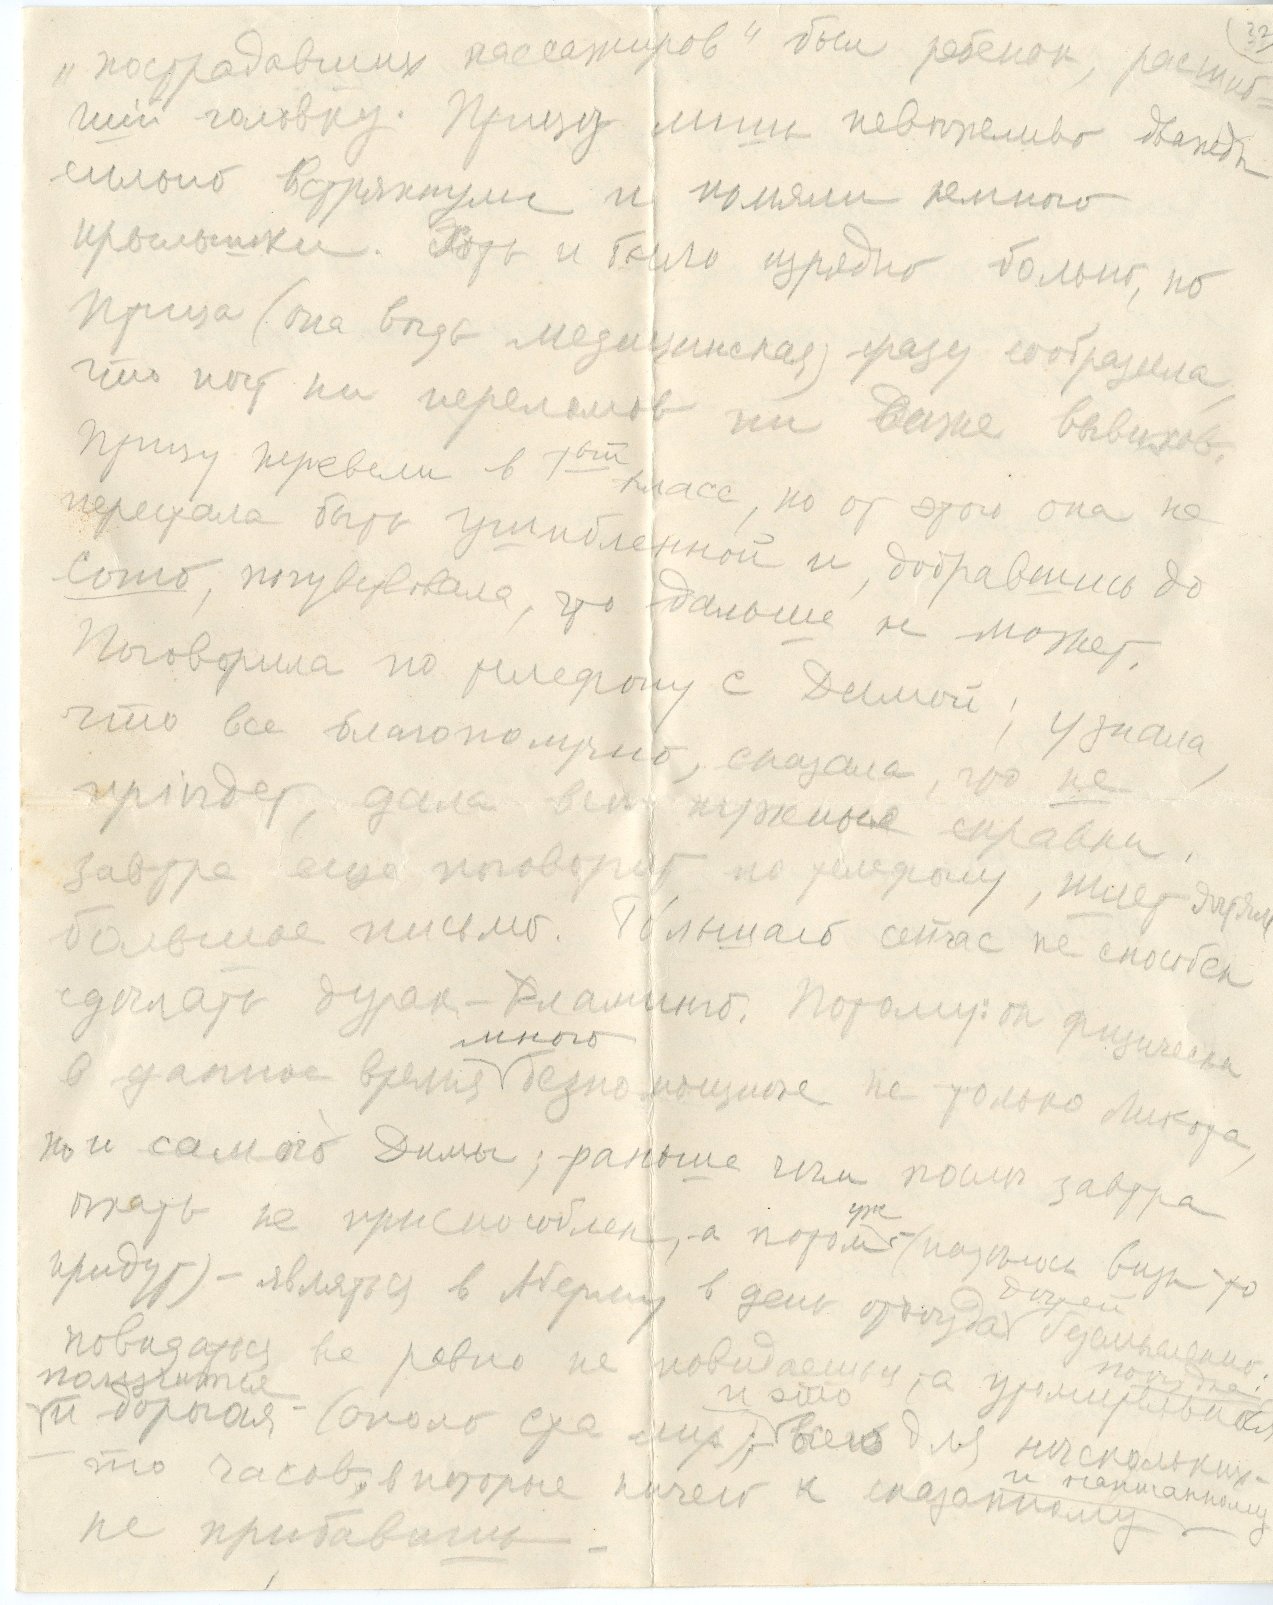 22
„пострадавших пассажиров“ был ребенок, расшиб-
ший головку. Прицу лишь невѣжливо дважды
сильно встряхнули и помяли немного
крылышки. Хоть и было изрядно больно, но
Прица (она вѣдь медицинская) сразу сообразила,
что нѣт ни переломов ни даже вывихов.
Прицу перевели в 1ый класс, но от этого она не
перестала быть ушибленной и, добравшись до
Сомо, почувствовала, что дальше не может.
Поговорила по телефону с Димой; узнала,
что все благополучно, сказала, что не
пріѣдет, дала всѣ нужные справки.
Завтра еще поговорит по телефону, шлет дѣтям
большое письмо. Большаго сейчас не способен
сдѣлать дурак-Фламинго. Потому: он физически
в данное время много безпомощнѣе не только Никота,
но и самого Димы; раньше чѣм послѣ завтра
ѣхать не приспособлен, а потом уж (надѣюсь визы-то
придут) – являться в Аберг в день отъѣзда дѣтей безсмысленно:
повидаться все равно не повидаешься, а утомительная поѣздка
получится
и дорогая – (около ста мар.) и это всего для нѣскольких-
– то часов, в которые ничего к сказанному и написанному
не прибавишь –